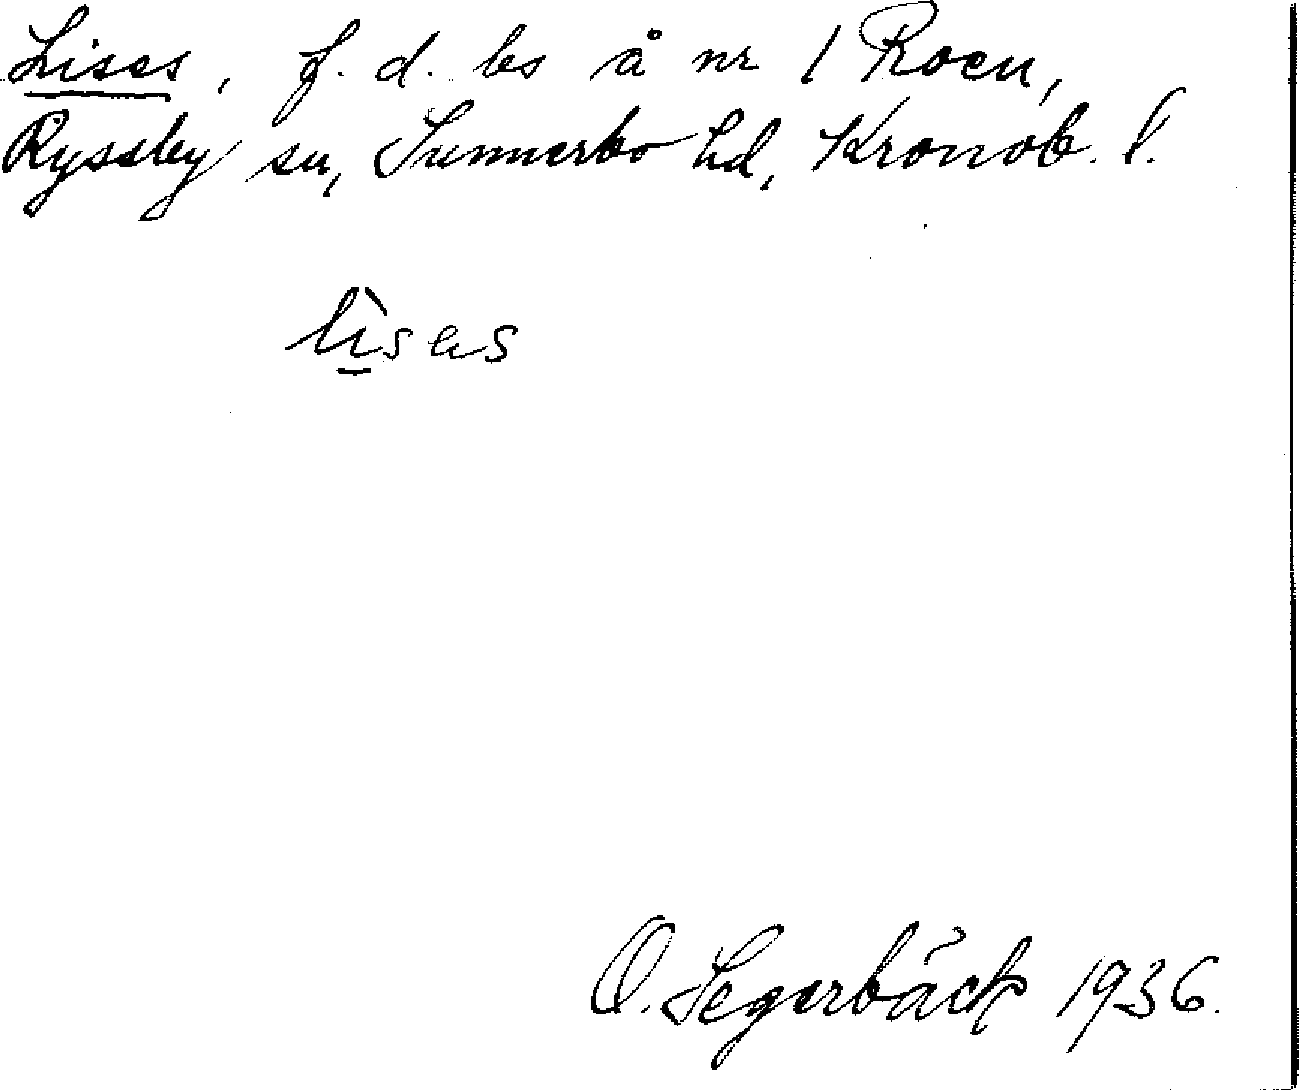 Lises, f. d. bs å nr 1 Roen,
Ryssby sn, Sunnerbo hd, Kronob. l.
lìses
O. Segerbäck 1936.